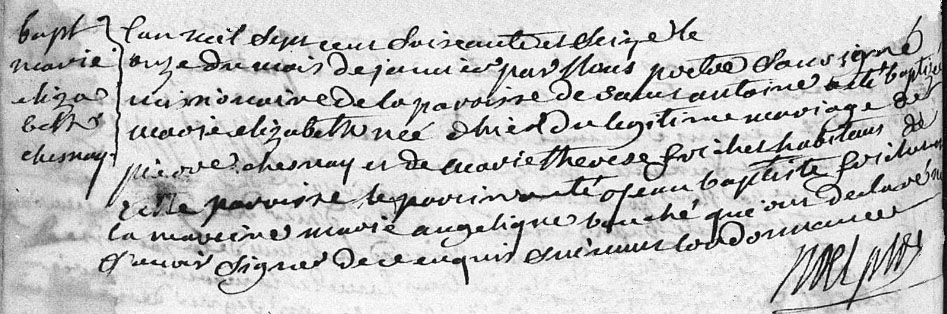 bapt
marie
eliza
beth
chesnay
L'an mil sept cent soixante et seize le
onze du mois de janvier par Nous prêtre soussigné
missionaire de la paroisse de saint antoine a été baptisée
marie elizabeth née d'hier du legitime mariage de
pierre chesnay et de marie therese frichet habitans de
cette paroisse le parrin a été jean baptiste
la marine marie angelique bouché qui ont declaré ne
sçavoir signer de ce enquis suivant l'ordonnance
Noel ptre